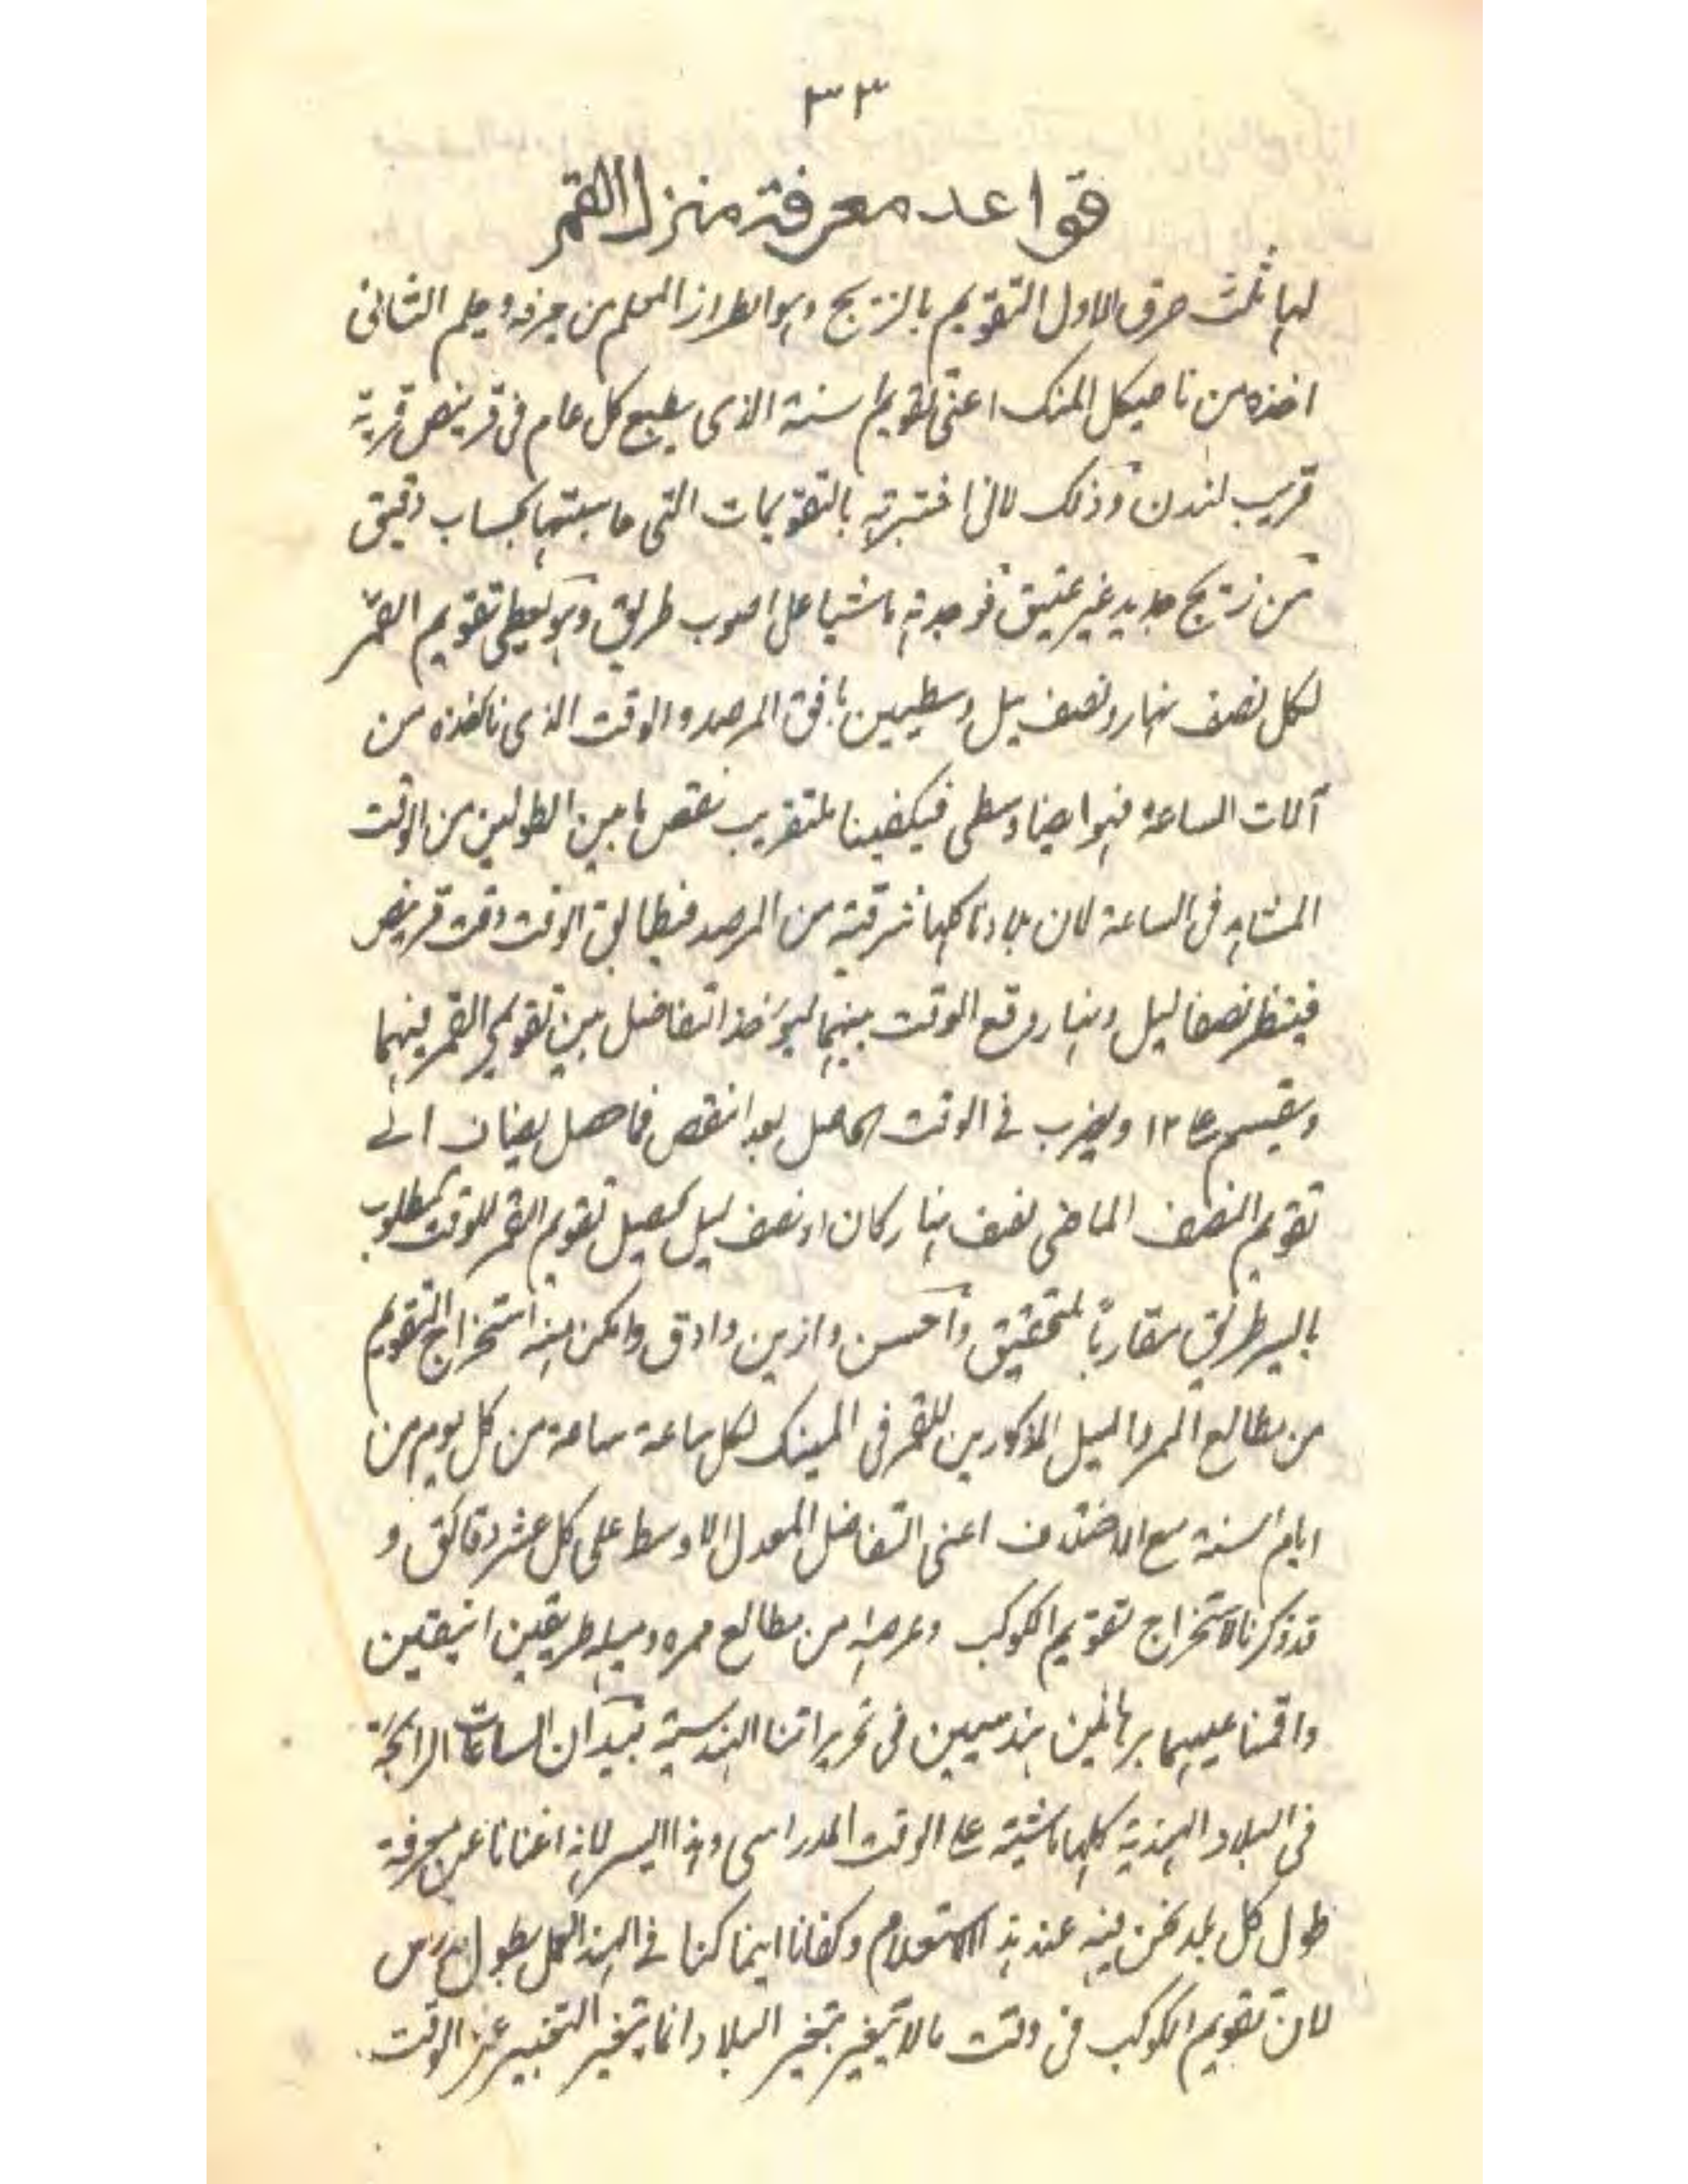 ٣٣
قواعد معرفة منزل القمر
لها ثلث طرق الاول التقويم بالزيج وهو الطراز المعلم من يعرفه ويعلم الثانى
اخذه من ناطيكل المنك اعنى تقويم سنة الذى يطبع كل عام فى قرينص قرية
قريب لندن وذلك لانى اختبرته بالتقويمات التى حاسبتها بحساب دقيق
من زيج جديد غير عتيق فوجدته ماشيا على اصوب طريق وهو يعطى تقويم القمر
لكل نصف نهار ونصف ليل وسطيين بافق المرصد والوقت الذى ناخذه من
آلات الساعة فهو ايضا وسطى فيكفينا للتقريب نقص ما بين الطولين من الوقت
المشاهد فى الساعة لان بلادنا كلها شرقية من المرصد فيطابق الوقت وقت قرينص
فينظر نصفا ليل ونهار وقع الوقت بينهما ليؤخذ التفاضل بين تقويمى القمر فيهما
ويقسم على ١٢ ويضرب فى الوقت الحاصل بعد النقص فما حصل يضاف الى
تقويم النصف الماضى نصف نهار كان او نصف ليل يحصل تقويم القمر للوقت المطلوب
بايسر طريق مقاربا للتحقيق واحسن وازين وادق وامكن منه استخراج التقويم
من مطالع الممر والميل المذكورين للقمر فى المينك لكل ساعة ساعة من كل يوم من
ايام السنة مع الاختلاف اعنى التفاضل المعدل الاوسط على كل عشر دقائق و
قد ذكرنا لاستخراج تقويم الكوكب وعرضه من مطالع ممره وميله طريقين انيقين
واقمنا عليهما برهانين هندسيين فى تحريراتنا الهندسية بيد ان الساعات الرائجة
فى البلاد الهندية كلها ماشية على الوقت المدراسى وهذا ايسر لانه اغنانا عن معرفة
طول كل بلد نحن فيه عند هذا الاستعلام وكفانا اينما كنا فى الهند العمل بطول مدراس
لان تقويم الكوكب فى وقت ما لا يتغير بتغير البلاد انما يتغير التعبير عن الوقت